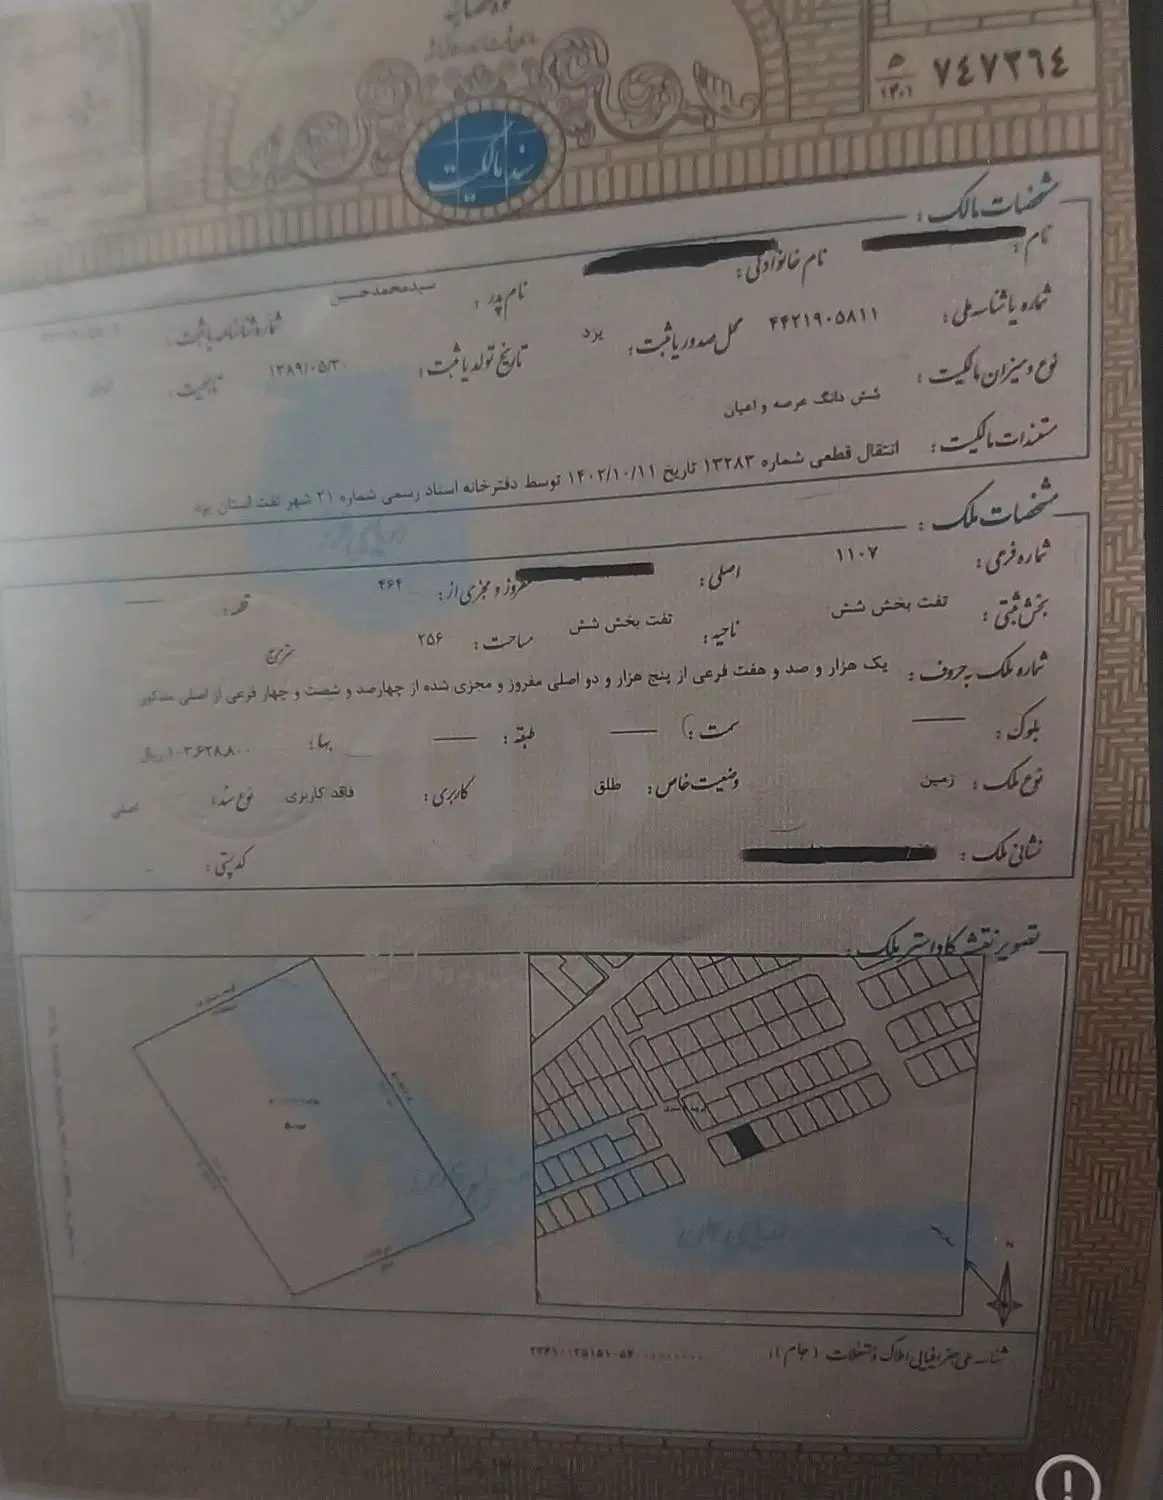 ۷۴۷۳۶۴ ۵/۱۴۰۱
سند مالکیت
مشخصات مالک :
نام : نام خانوادگی :
نام پدر : سیدمحمدحسین
شماره یا شناسه ملی : ۴۴۲۱۹۰۵۸۱۱ محل صدور یا ثبت : یزد شماره شناسنامه یا ثبت :
تاریخ تولد یا ثبت : ۱۳۸۹/۰۵/۳۰ تابعیت :
نوع و میزان مالکیت : شش دانگ عرصه و اعیان
مستندات مالکیت : انتقال قطعی شماره ۱۳۲۸۳ تاریخ ۱۴۰۲/۱۰/۱۱ توسط دفترخانه اسناد رسمی شماره ۲۱ شهر تفت استان یزد
مشخصات ملک :
شماره فرعی : ۱۱۰۷ اصلی : مفروز و مجزی از : ۴۶۴ قطعه :
بخش ثبتی : تفت بخش شش ناحیه : تفت بخش شش مساحت : ۲۵۶ مترمربع
شماره ملک به حروف : یک هزار و صد و هفت فرعی از پنج هزار و دو اصلی مفروز و مجزی شده از چهارصد و شصت و چهار فرعی از اصلی مذکور
بلوک : سمت : طبقه : بها : ۱۰۲,۶۲۸,۸۰۰ ریال
نوع ملک : زمین وضعیت خاص : طلق کاربری : فاقد کاربری نوع سند : اصلی
نشانی ملک : کدپستی :
تصویر نقشه کاداستر ملک :
N
شناسه ملی جغرافیایی املاک و مستغلات ( جام ) :